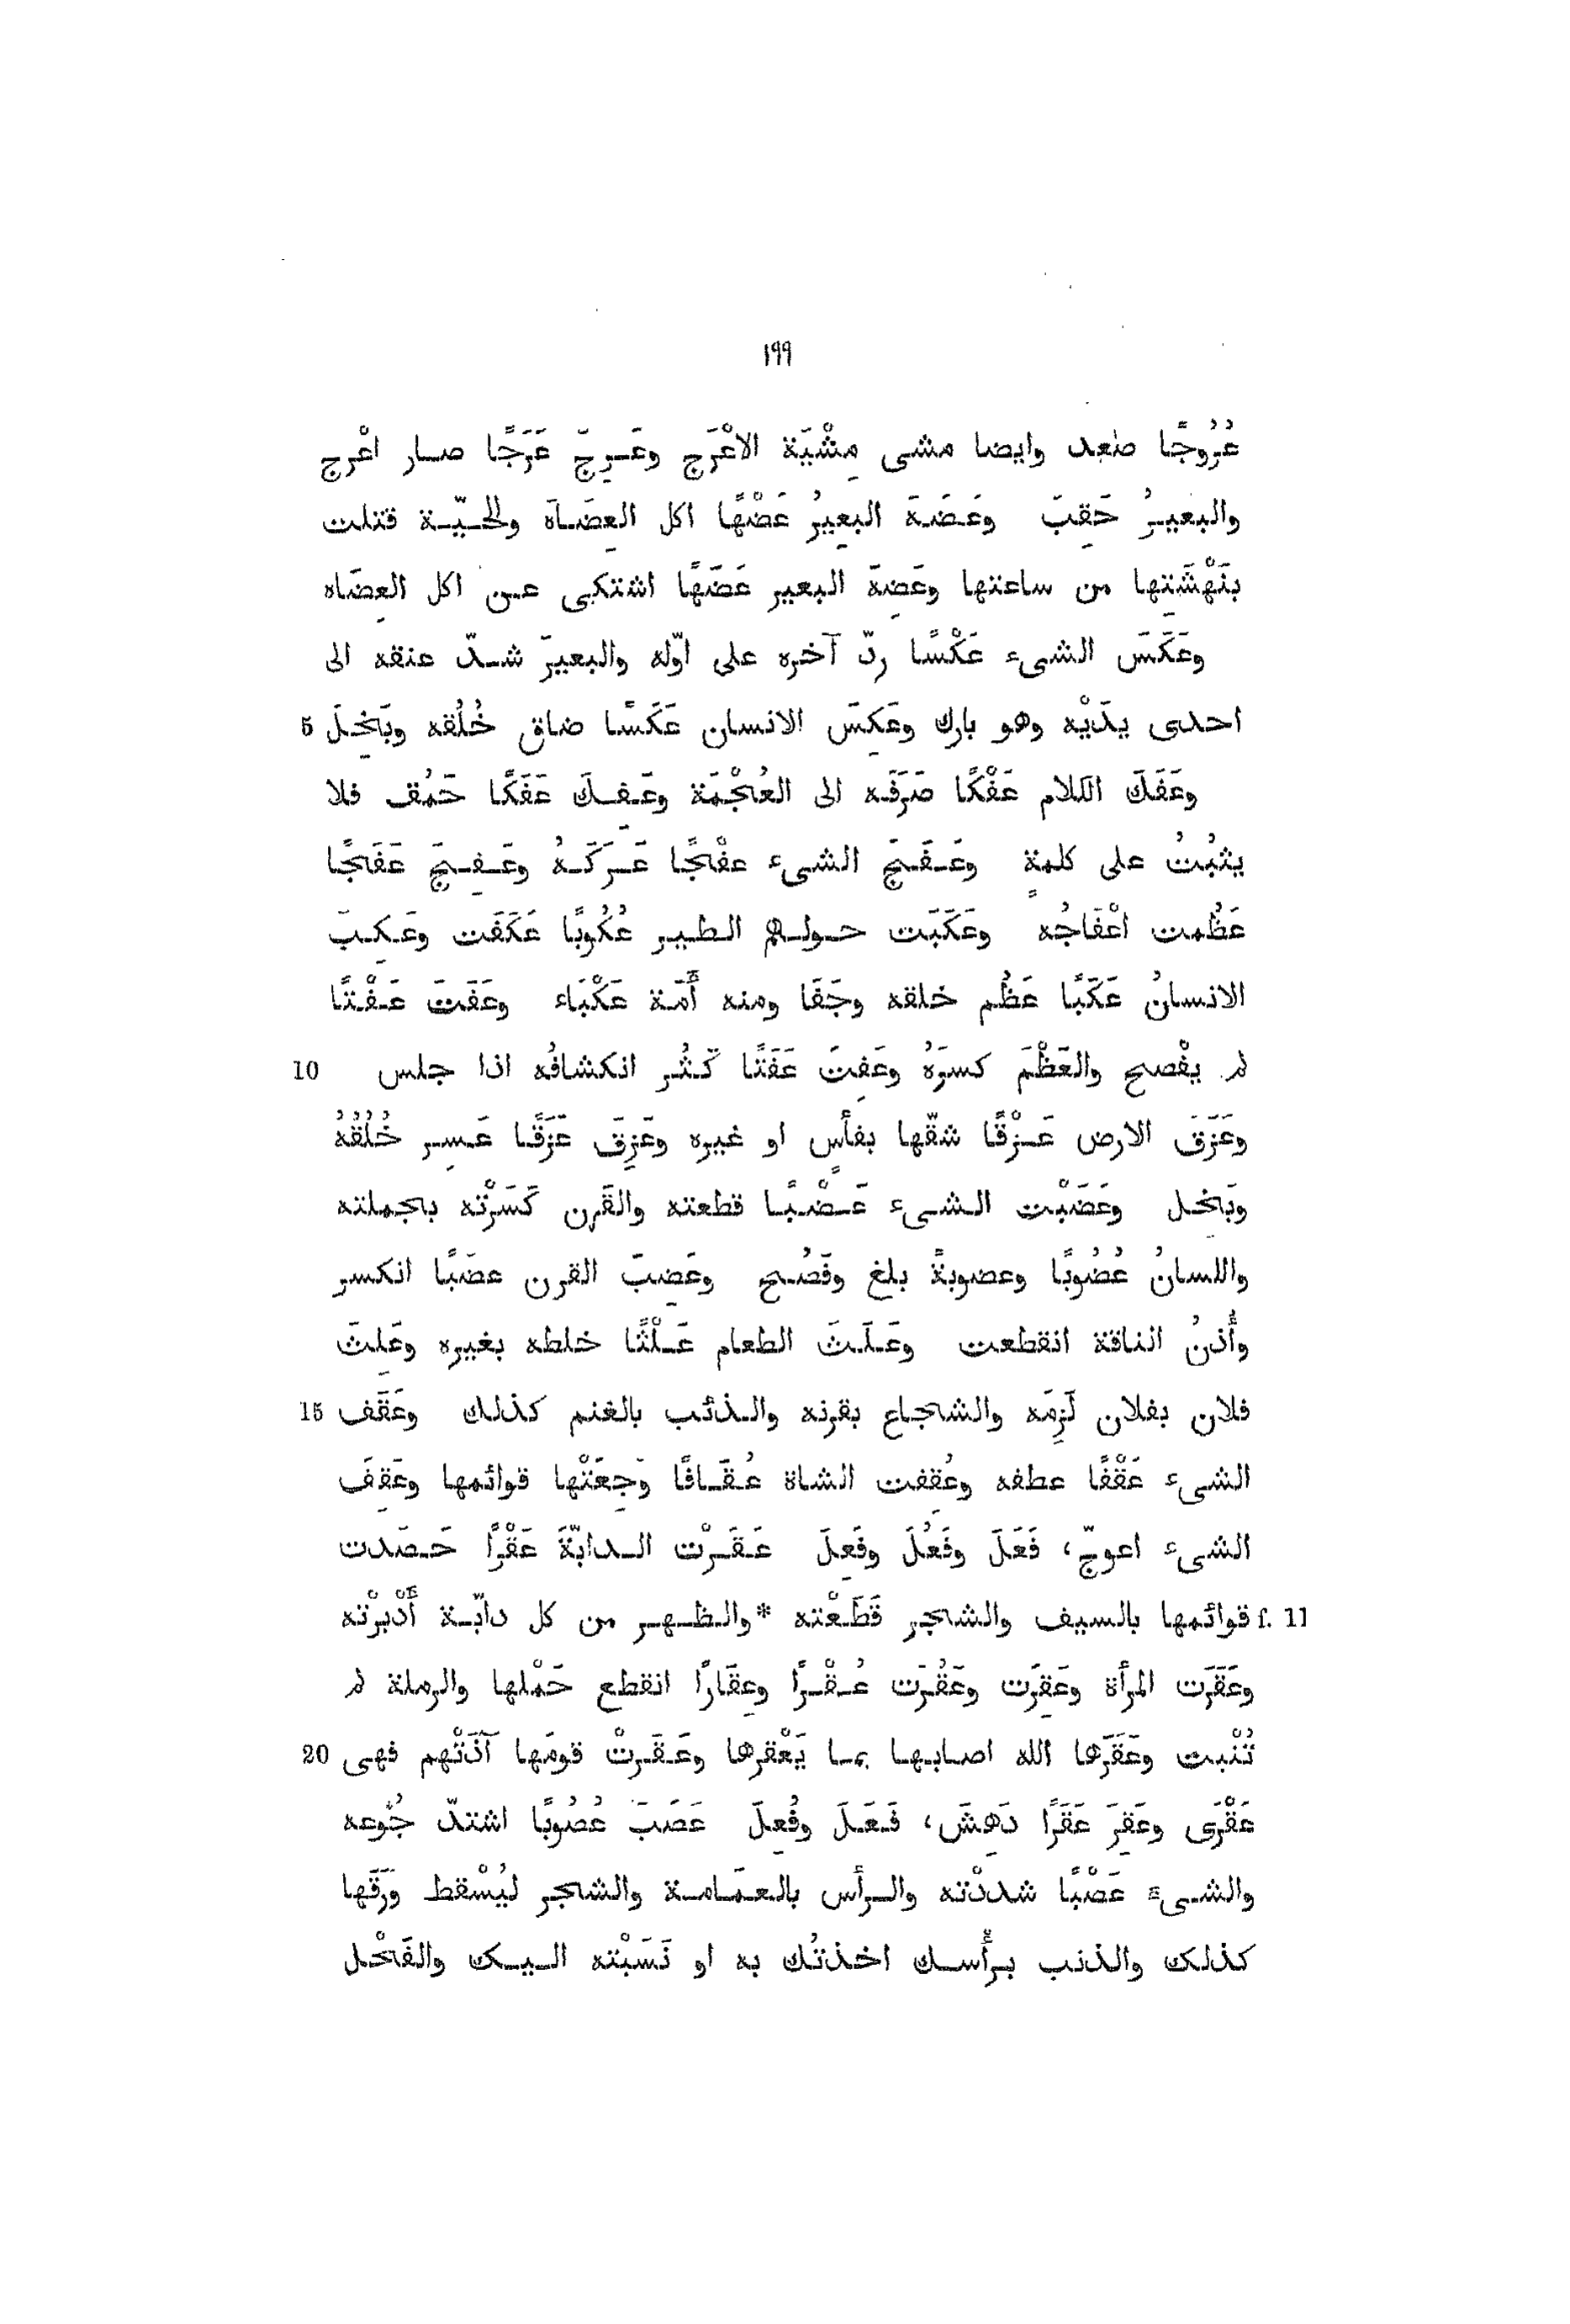 ١٩٩
عُرُوجًا صعِد وايضا مشى مِشْيَة الاعْرَج وعَرِجَ عَرَجًا صار اعْرج
والبعيرُ حَقِبَ وعَضَهَ البعِيرُ عَضْهًا اكل العِضَاهَ والحَيّة قتلت
بنَهْشَتِها من ساعتها وعَضِهَ البعير عَضَهًا اشتكى عن اكل العِضَاه
وعَكَسَ الشىء عَكْسًا ردّ آخره على اوّله والبعيرَ شدّ عنقه الى
احدى يدَيْه وهو بارك وعَكِسَ الانسان عَكَسًا ضاق خُلُقه وبَخِلَ 5
وعَفَكَ الكلام عَفْكًا صَرَفَه الى العُجْمَة وعَفِكَ عَفَكًا حَمُق فلا
يثبُتُ على كلمةٍ وعَفَجَ الشىء عفْجًا عَرَكَهُ وعَفِجَ عَفَجًا
عَظُمت اعْفَاجُه وعَكَبَت حولهم الطير عُكُوبًا عَكَفَت وعَكِبَ
الانسانُ عَكَبًا عَظُم خلقه وجَفَا ومنه أَمَة عَكْبَاء وعَفَتَ عَفْتًا
لم يفْصح والعَظْمَ كسرَهُ وعَفِتَ عَفَتًا كَثُر انكشافُه اذا جلس 10
وعَزَقَ الارض عَزْقًا شقّها بفأسٍ او غيره وعَزِقَ عَزَقًا عَسِر خُلُقُهُ
وبَخِل وعَضَبْت الشىء عَضْبًا قطعته والقَرن كَسَرْته بجملته
واللسانُ عُضُوبًا وعضوبةً بلغ وفَصُح وعَضِبَ القرن عضَبًا انكسر
وأُذنُ الناقة انقطعت وعَلَثَ الطعام عَلْثًا خلطه بغيره وعَلِثَ
فلان بفلان لَزِمَه والشجاع بقرنه والذئب بالغنم كذلك وعَقَف 15
الشىء عَقْفًا عطفه وعُقِفت الشاة عُقَافًا وَجِعَتْها قوائمها وعَقِفَ
الشىء اعوجّ، فَعَلَ وفَعُلَ وفَعِلَ عَقَرْت الدابّةَ عَقْرًا حَصَدت
قوائمها بالسيف والشجر قَطَعْته *والظهر من كل دابّة أَدْبرْته f. 11
وعَقَرَت المرأة وعَقِرَت وعَقُرَت عُقْرًا وعِقَارًا انقطع حَمْلها والرملة لم
تُنْبت وعَقَرَها الله اصابها بما يَعْقرها وعَقَرتْ قومَها آذَتْهم فهى 20
عَقْرَى وعَقِرَ عَقَرًا دَهِشَ، فَعَلَ وفُعِلَ عَصَبَ عُصُوبًا اشتدّ جُوعه
والشىءَ عَصْبًا شددْته والرأس بالعمَامة والشجر ليُسْقط وَرَقَها
كذلك والذنب برأسك اخذتُك به او نَسَبْته اليك والفَحْل